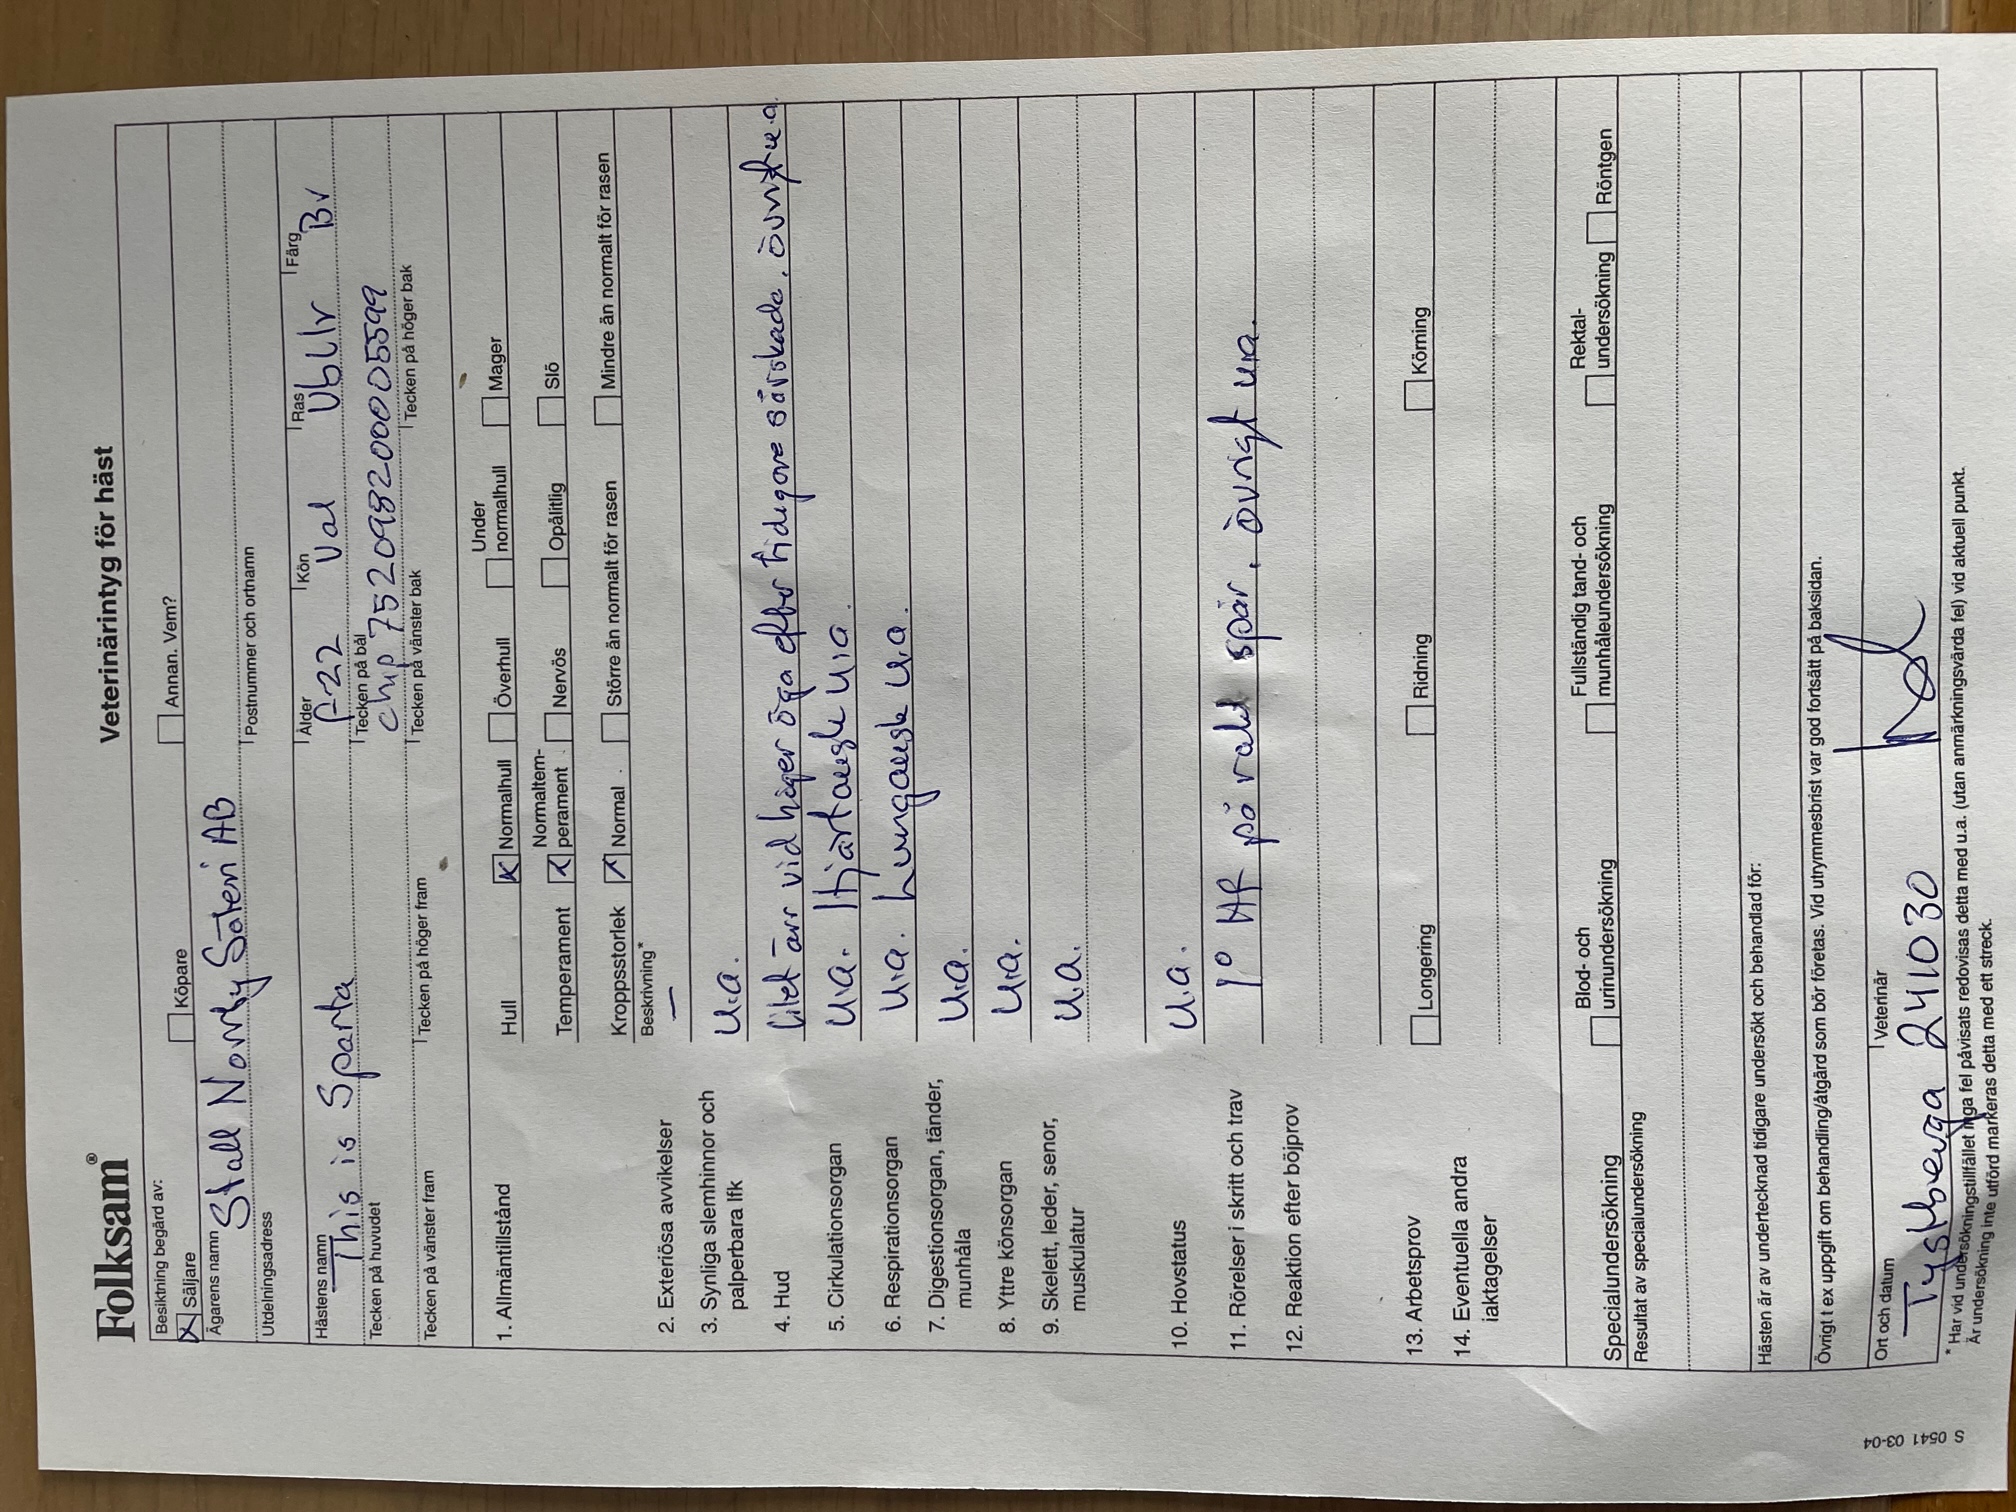 Folksam®
Veterinärintyg för häst
Besiktning begärd av:
☒ Säljare ☐ Köpare ☐ Annan. Vem?
Ägarens namn
Stall Norrby Säteri AB
Utdelningsadress Postnummer och ortnamn
Hästens namn Ålder Kön Ras Färg
This is Sparta f-22 Val Vblr Br
Tecken på huvudet Tecken på bål
chip 752098200005599
Tecken på vänster fram Tecken på höger fram Tecken på vänster bak Tecken på höger bak
1. Allmäntillstånd Hull ☒ Normalhull ☐ Överhull ☐ Under normalhull ☐ Mager
Temperament ☒ Normaltem-perament ☐ Nervös ☐ Opålitlig ☐ Slö
Kroppsstorlek ☒ Normal ☐ Större än normalt för rasen ☐ Mindre än normalt för rasen
Beskrivning*
2. Exteriösa avvikelser —
3. Synliga slemhinnor och palperbara lfk u.a.
4. Hud litet ärr vid höger öga efter tidigare sårskada, övrigt u.a.
5. Cirkulationsorgan u.a. Hjärtausk u.a.
6. Respirationsorgan u.a. Lungausk u.a.
7. Digestionsorgan, tänder, munhåla u.a.
8. Yttre könsorgan u.a.
9. Skelett, leder, senor, muskulatur u.a.
10. Hovstatus u.a.
11. Rörelser i skritt och trav 1° HF på rakt spår, övrigt u.a.
12. Reaktion efter böjprov
13. Arbetsprov ☐ Longering ☐ Ridning ☐ Körning
14. Eventuella andra iaktagelser
Specialundersökning ☐ Blod- och urinundersökning ☐ Fullständig tand- och munhåleundersökning ☐ Rektal-undersökning ☐ Röntgen
Resultat av specialundersökning
Hästen är av undertecknad tidigare undersökt och behandlad för:
Övrigt t ex uppgift om behandling/åtgärd som bör företas. Vid utrymmesbrist var god fortsätt på baksidan.
Ort och datum Veterinär
Tystberga 241030
* Har vid undersökningstillfället inga fel påvisats redovisas detta med u.a. (utan anmärkningsvärda fel) vid aktuell punkt.
Är undersökning inte utförd markeras detta med ett streck.
S 0541 03-04